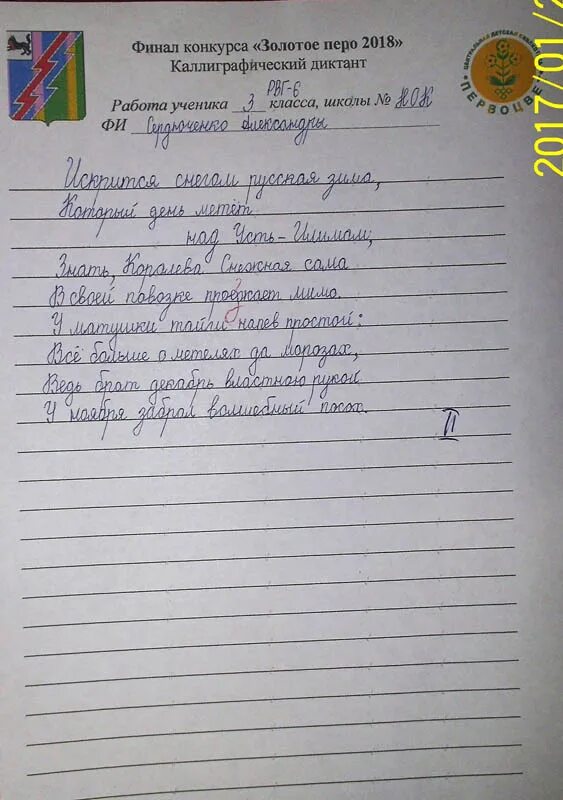 Финал конкурса «Золотое перо 2018»
Каллиграфический диктант
РВГ-6
Работа ученика 3 класса, школы № НОК
ФИ Сердюченко Александры
ЦЕНТРАЛЬНАЯ ДЕТСКАЯ
ПЕРВОЦВЕТ
2017/01/2
Искрится снегом русская зима,
Который день метёт
над Усть-Илимом;
Знать, Королева Снежная сама
В своей повозке проезжает мимо.
У матушки тайги напев простой:
Всё больше о метелях да морозах,
Ведь брат декабрь властною рукой
У ноября забрал волшебный посох.
II